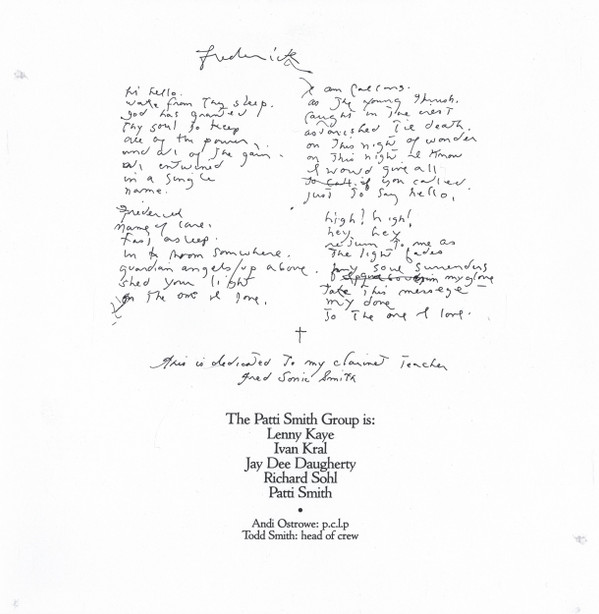 Frederick
hi hello.
wake from thy sleep.
god has granted
thy soul to keep
all of the power.
and all of the gain.
all entwined
in a single
name.
Frederick
name of care.
fast asleep.
in a room somewhere.
guardian angels/up above.
shed your light
on the one I love.
I am calling.
as the young thrush.
caught in the crest
astonished tie death.
on this night of wonder
on this night. I know
I would give all
to call. if you called.
just to say hello.
high! high!
hey hey
return to me as
the light fades
my soul surrenders
in my glove
take this message
my dove
to the one I love.
†
this is dedicated to my clarinet teacher
fred Sonic Smith
The Patti Smith Group is:
Lenny Kaye
Ivan Kral
Jay Dee Daugherty
Richard Sohl
Patti Smith
•
Andi Ostrowe: p.c.l.p
Todd Smith: head of crew